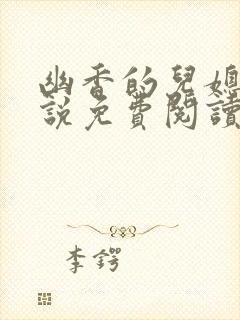 幽香的兒媳
說免費閱讀
李鍔